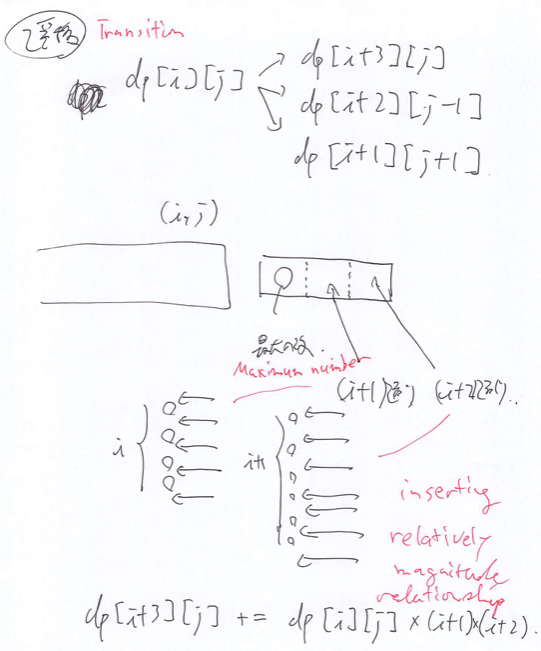 遷移 Transition
dp[i][j]
dp[i+3][j]
dp[i+2][j-1]
dp[i+1][j+1]
(i, j)
最大の数.
Maximum number
(i+1)通り (i+2)通り..
i
i+1
inserting
relatively
magnitude
relationship
dp[i+3][j] += dp[i][j] × (i+1)×(i+2).